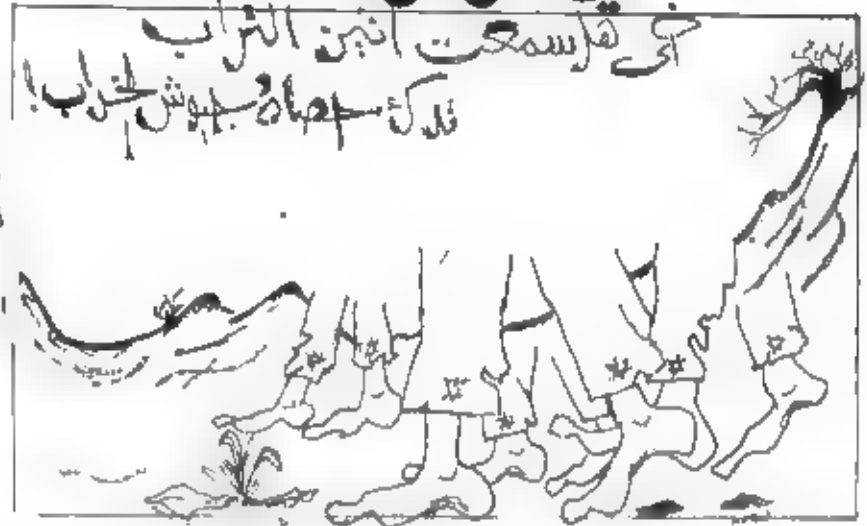 أخي هل سمعت أنين التراب
تدكّ حصاه جيوش الخراب